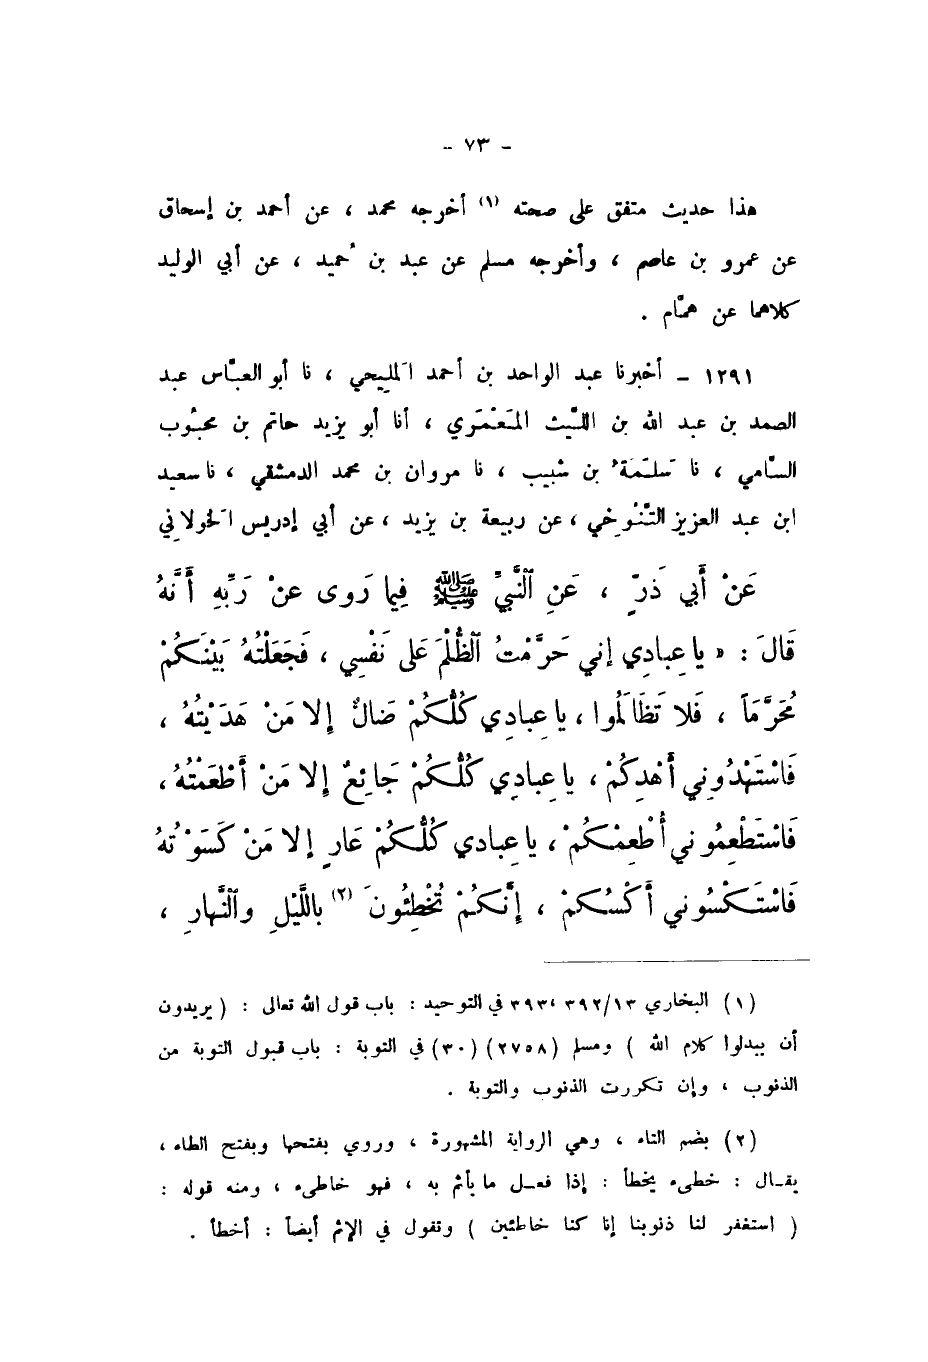 - ٧٣ -
هذا حديث متفق على صحته (١) أخرجه محمد ، عن أحمد بن إسحاق
عن عمرو بن عاصم ، وأخرجه مسلم عن عبد بن حُميد ، عن أبي الوليد
كلاهما عن همَّام .
١٢٩١ - أخبرنا عبد الواحد بن أحمد المَليحي ، نا أبو العبَّاس عبد
الصمد بن عبد الله بن اللَّيث المَعْمَري ، أنا أبو يزيد حاتم بن محبُوب
السَّامي ، نا سَلَمَةُ بن شَبيب ، نا مروان بن محمد الدمشقي ، نا سعيد
ابن عبد العزيز التَّنُوخي ، عن ربيعة بن يزيد ، عن أبي إدريس الخَولاني
عَنْ أَبي ذَرٍّ ، عَنِ ٱلنَّبيِّ ﷺ فِيما رَوى عنْ رَبِّهِ أَنَّهُ
قَالَ : « يا عِبادِي إني حَرَّمْتُ ٱلظُّلْمَ عَلى نَفْسِي ، فَجَعَلْتُهُ بَيْنَكُمْ
مُحَرَّمَاً ، فَلا تَظَالَمُوا ، يا عِبادِي كُلُّكُمْ ضَالٌّ إِلا مَنْ هَدَيْتُهُ ،
فَاسْتَهْدُونِي أَهْدِكُمْ ، يا عِبادِي كُلُّكُمْ جَائِعٌ إِلا مَنْ أَطْعَمْتُهُ ،
فَاسْتَطْعِمُوني أُطْعِمْكُمْ ، يا عِبادي كُلُّكُمْ عَارٍ إِلا مَنْ كَسَوْتُهُ
فَاسْتَكْسُوني أَكْسُكُمْ ، إِنَّكُمْ تُخْطِئُونَ (٢) باللَّيْلِ وٱلنَّهارِ ،
(١) البخاري ٣٩٢/١٣ ، ٣٩٣ في التوحيد : باب قول الله تعالى : ( يريدون
أن يبدلوا كلام الله ) ومسلم (٢٧٥٨) (٣٠) في التوبة : باب قبول التوبة من
الذنوب ، وإن تكررت الذنوب والتوبة .
(٢) بضم التاء ، وهي الرواية المشهورة ، وروي بفتحها وبفتح الطاء ،
يقـال : خطىء يخطأ : إذا فعـل ما يأثم به ، فهو خاطىء ، ومنه قوله :
( استغفر لنا ذنوبنا إنا كنا خاطئين ) وتقول في الإثم أيضاً : أخطأ .